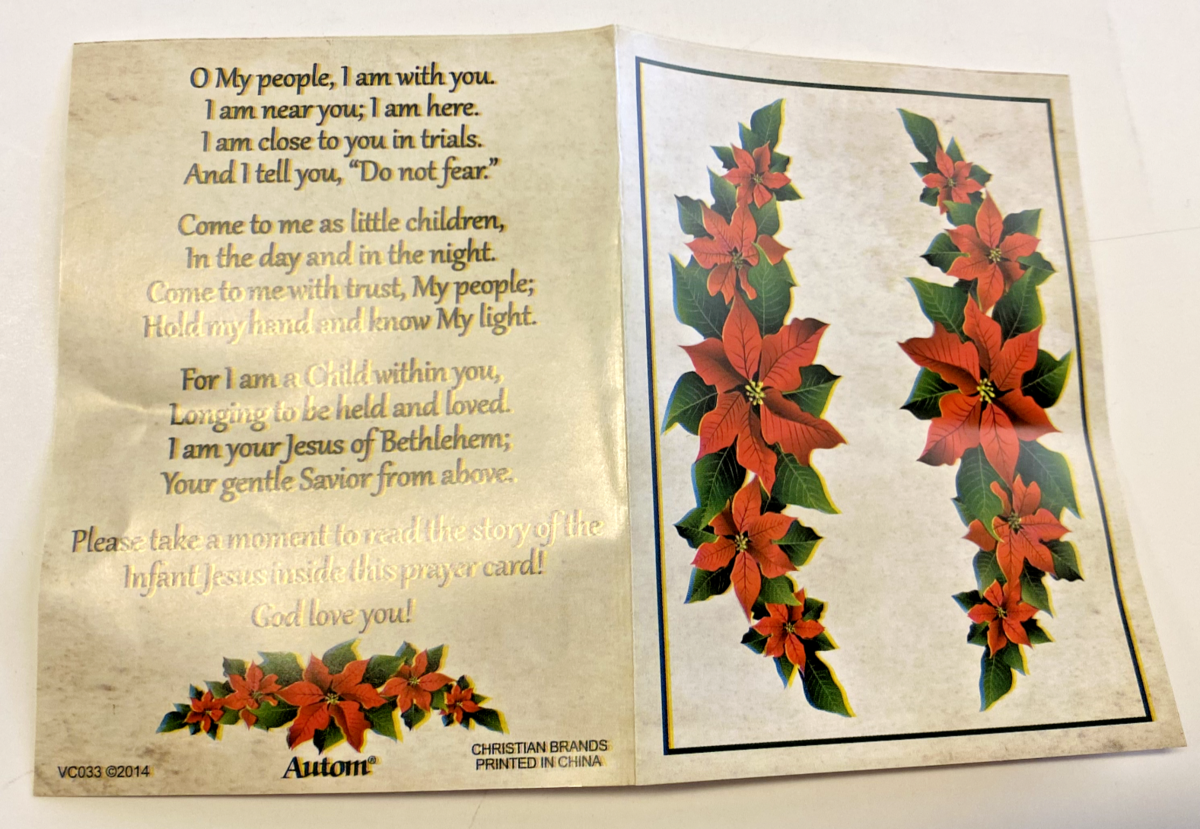 O My people, I am with you.
I am near you; I am here.
I am close to you in trials.
And I tell you, “Do not fear.”
Come to me as little children,
In the day and in the night.
Come to me with trust, My people;
Hold my hand and know My light.
For I am a Child within you,
Longing to be held and loved.
I am your Jesus of Bethlehem;
Your gentle Savior from above.
Please take a moment to read the story of the
Infant Jesus inside this prayer card!
God love you!
VC033 ©2014
Autom®
CHRISTIAN BRANDS
PRINTED IN CHINA